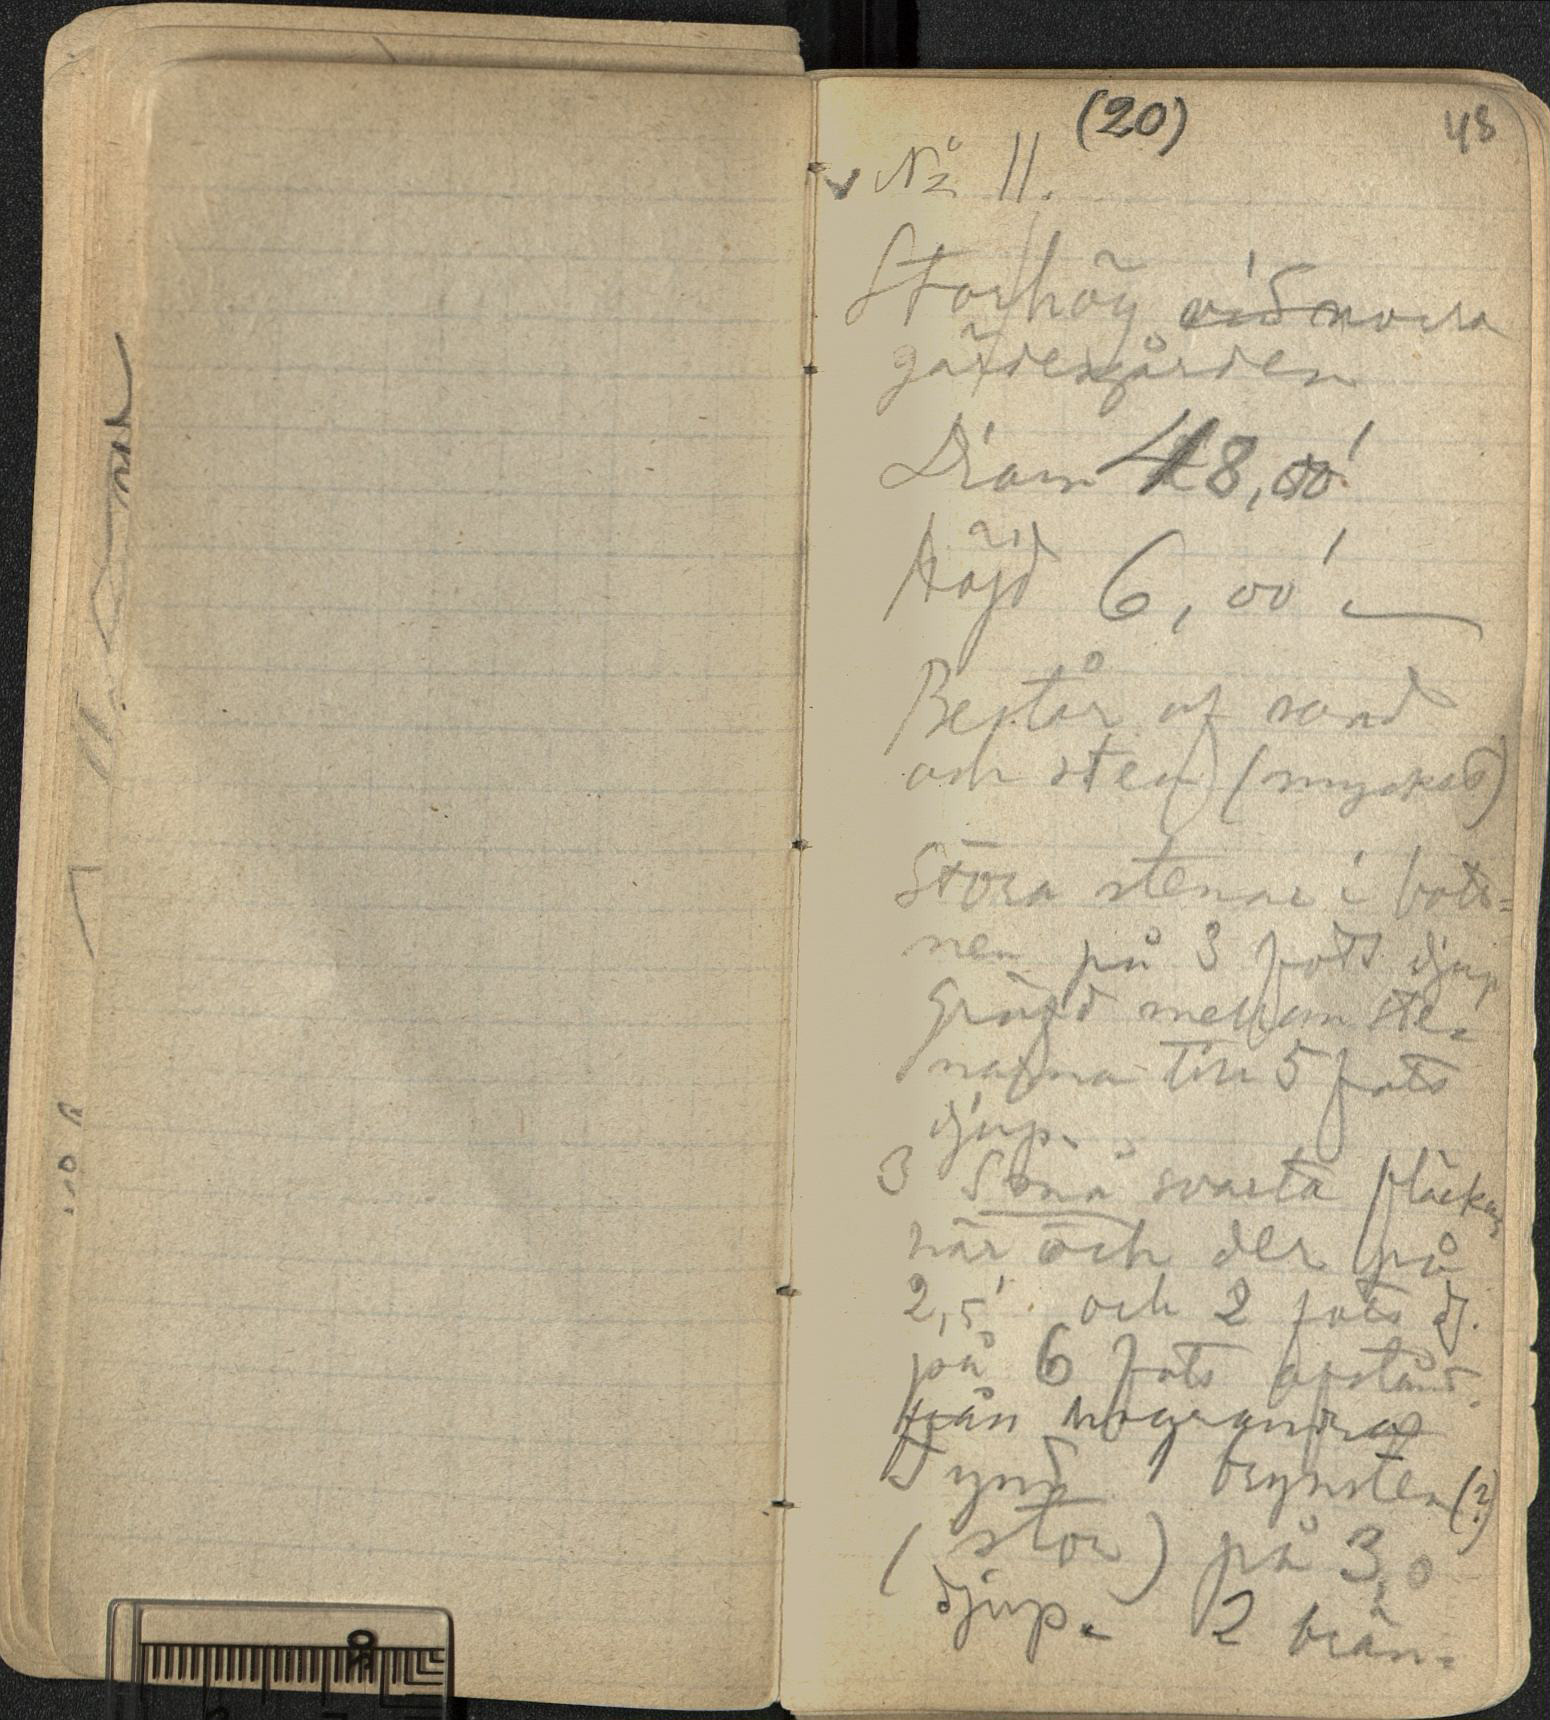 (20)
48
No 11.
Storhög vid norra
gärdesgården
Diam 48,00'
Höjd 6,00'
Består af sand
och sten (mycket)
Stora stenar i bott-
nen på 3 fots djup
Gräfd mellan ste-
narna till 5 fots
djup.
3 Små svarta fläckar
här och der på
2,5' och 2 fots dj.
på 6 fots afstånd
från hvarandra
Fynd 1 brynsten (?)
(stor) på 3,0
djup. 2 brän-